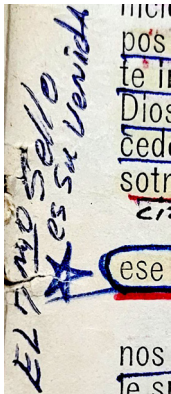 EL 7mo Sello
es su venida
pos
te i
Dios
cede
sotr
ese
nos